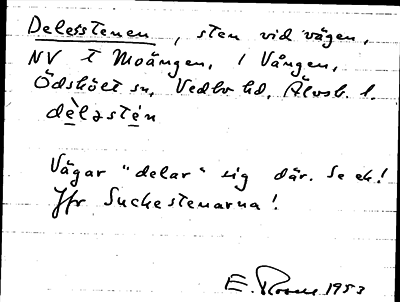 Delesstenen, sten vid vägen,
NV t Moängen, i Vången,
Ödskölt sn, Vedbo hd, Älvsb. l.
dèləstén
Vägar "delar" sig där. Se ek!
Jfr Suckestenarna!
E. 1953